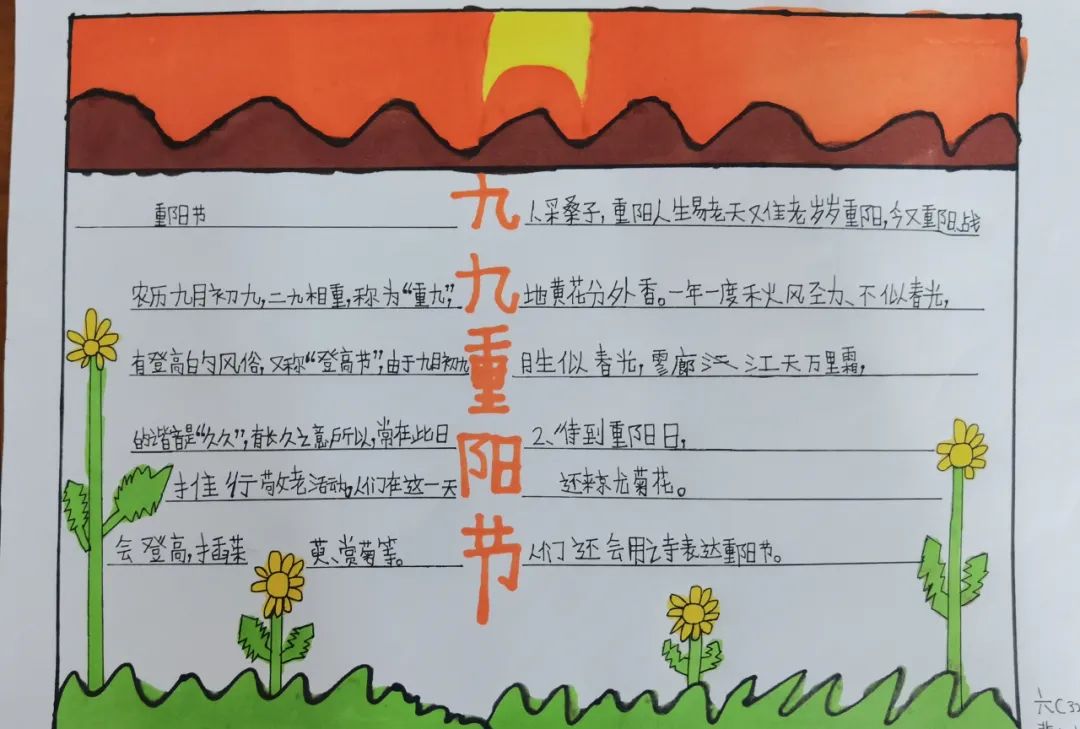 九九重阳节
重阳节
农历九月初九，二九相重，称为“重九”，
有登高的风俗，又称“登高节”，由于九月初九
的谐音是“久久”，有长久之意所以，常在此日
推行敬老活动，人们在这一天
会登高，插茱萸、赏菊等。
1、采桑子，重阳人生易老天又住老岁岁重阳，今又重阳，战
地黄花分外香。一年一度秋风至力、不似春光，
目生似春光，寥廓江天万里霜，
2、待到重阳日，
还来京尤菊花。
人们还会用诗表达重阳节。
六C32